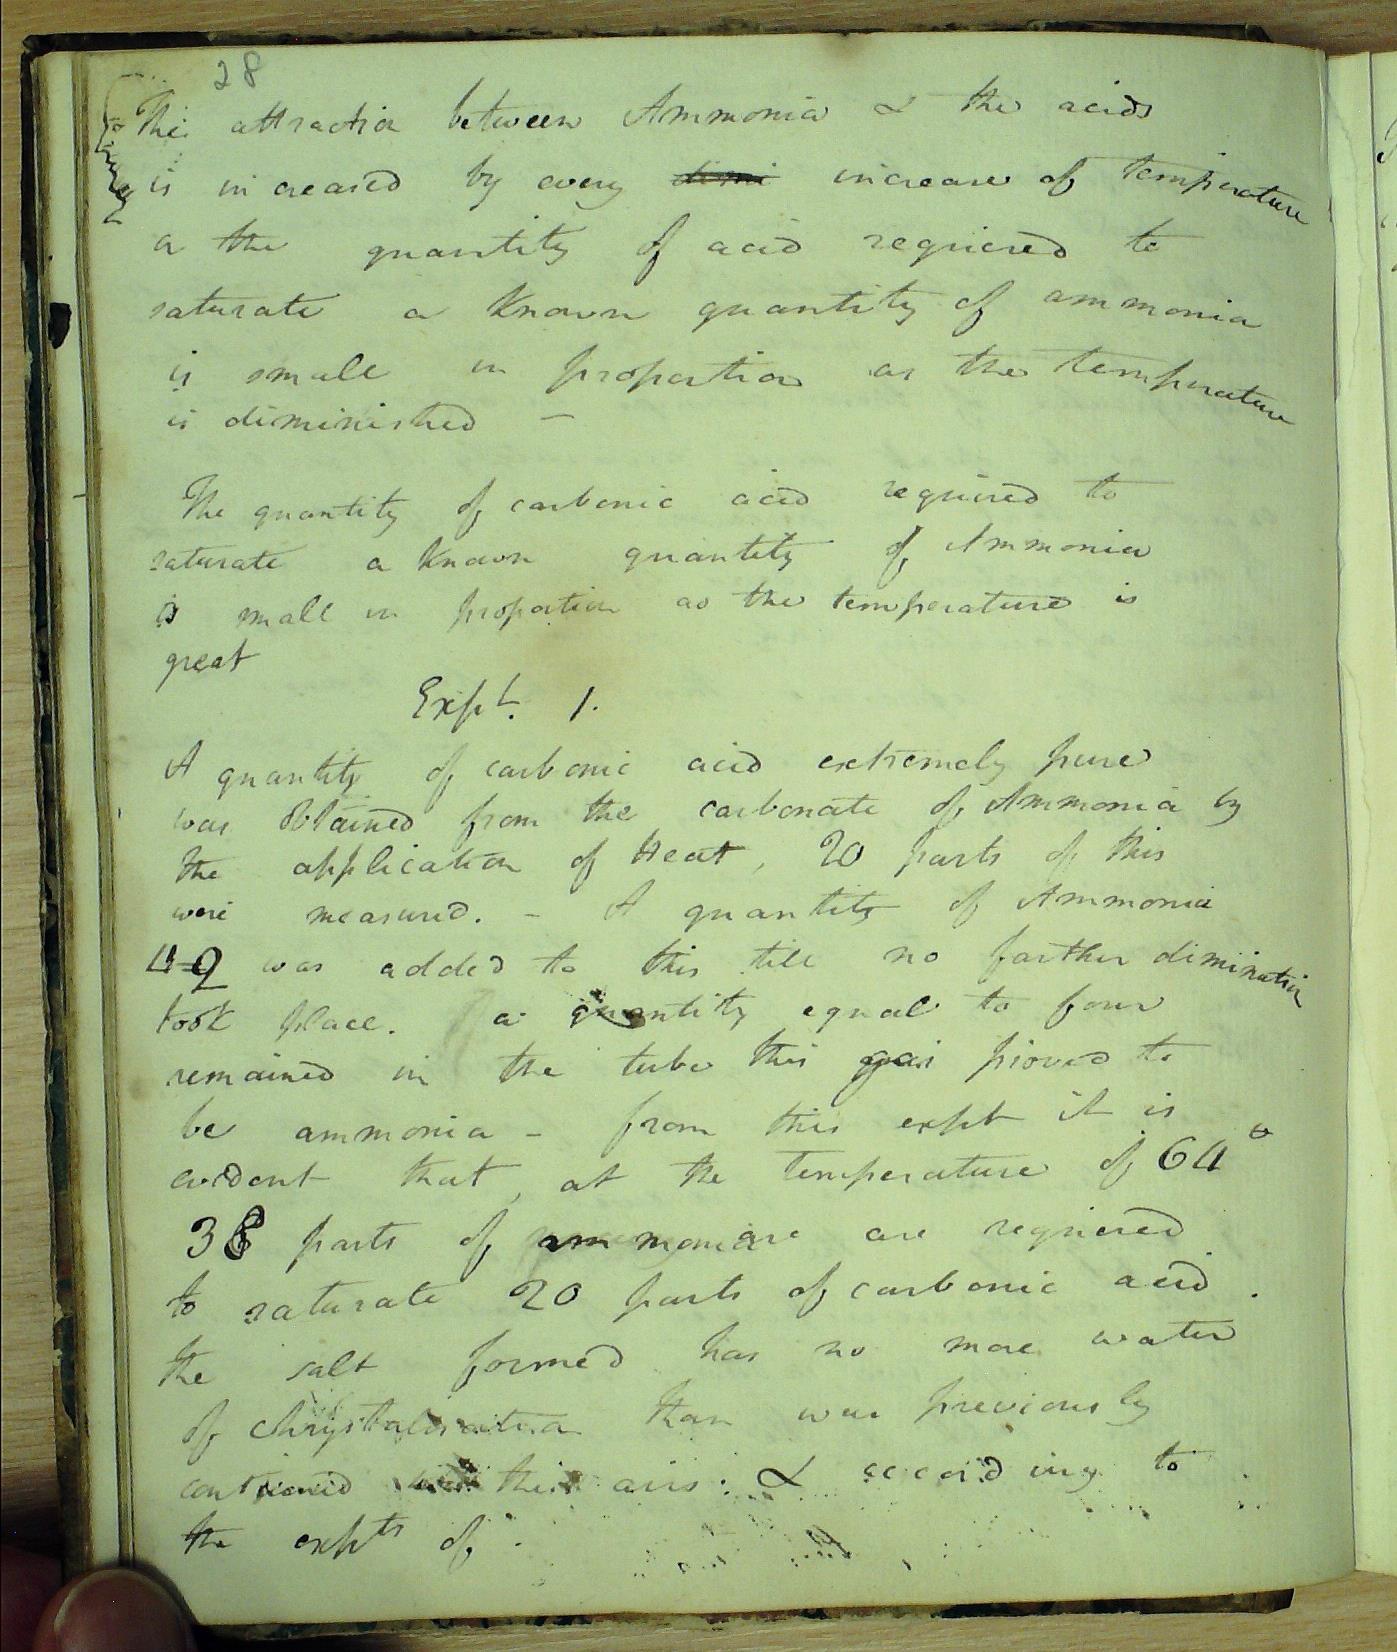 28
The attraction between Ammonia & the acids
is increased by every dimi increase of temperature
a the quantity of acid requiered to
saturate a known quantity of ammonia
is small in proportion as the temperature
is diminished –
The quantity of carbonic acid requiered to
saturate a known quantity of Ammonia
is small in proportion as the temperature is
great
Expt. 1.
A quantity of carbonic acid extremely pure
was obtained from the carbonate of Ammonia by
the application of Heat, 20 parts of this
were measured. – A quantity of Ammonia
42 was added to this till no farther diminution
took place. a quantity equal to four
remained in the tube this gas proved to
be ammonia – from this expt it is
evident that, at the temperature of 64°
38 parts of ammoniac are requiered
to saturate 20 parts of carbonic acid.
the salt formed has no more water
of chrystalisation than was previously
contained in this airs: & according to
the expts of